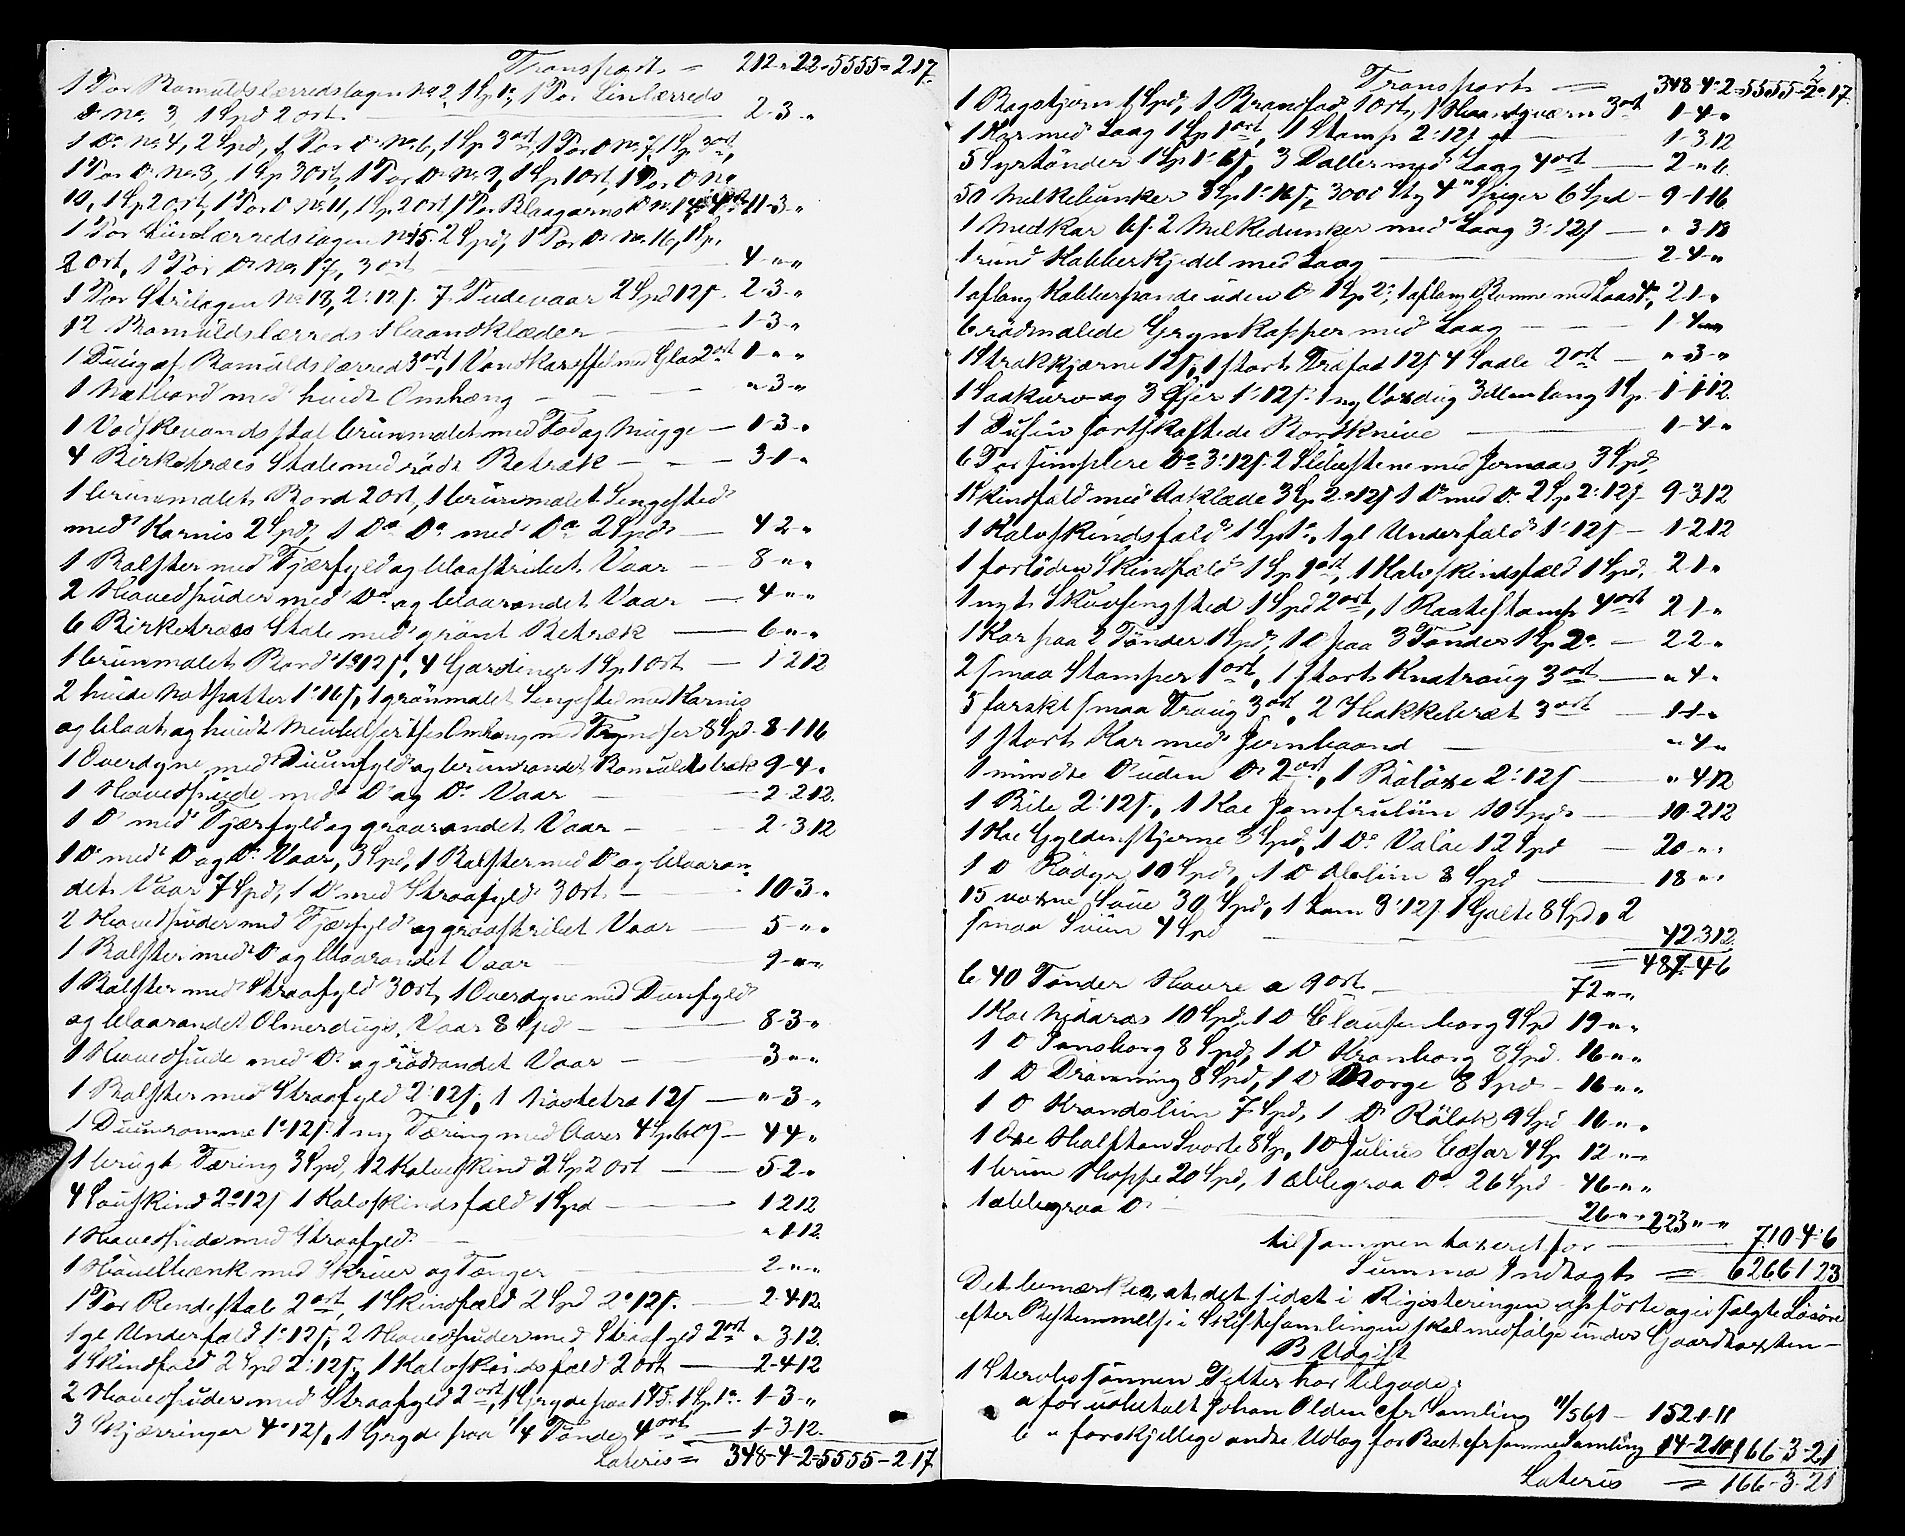 Transport = 212-22=5555=2.17.
1 Par Bomuldslærredslagen No 2, 1 Sp 1 o, 1 Par Linlærreds
Do No 3, 1 Spd 2 ort. 2-3-"
1 Do No 4, 2 Spd, 1 Par Do No 6, 1 Sp 3 ort, 1 Par Do No 7, 1 Sp 3 ort,
1 Par Do No 8, 1 Sp 3 ort, 1 Par Do No 9, 1 Sp 1 ort, 1 Par Do No
10, 1 Sp 2 ort, 1 Par Do No 11, 1 Sp 2 ort, 1 Par Blaagarns Do No 14 11-3-"
1 Par Linlærredslagen No 15. 2 Spd, 1 Par Do No 16, 1 Sp.
2 ort, 1 Par Do No 17, 3 ort 4-"-"
1 Par Strilagen No 18, 2:12 s. 7 Pudevaar 2 Spd 12 s. 2-3-"
12 Bomuldslærreds Haandklæder 1-3-"
1 Duug af Bomuldslærred 3 ort, 1 Vandkaraffel med Glas 2 ort 1-"-"
1 Natbord med hvidt Omhæng "-3-"
1 Vadskevandsstol brunmalet med Fad og Mugge 1-3-"
4 Birketræes Stole med rødt Betræk 3-1-"
1 brunmalet Bord 2 ort, 1 brunmalet Sengested
med Karnis 2 Spd, 1 Do Do med Do 2 Spd 4 2-"
1 Bolster med Fjærfyld og blaastribet Vaar 8-"-"
2 Hovedpuder med Do og blaarandet Vaar 4-"-"
6 Birketræes Stole med grønt Betræk 6-"-"
1 brunmalet Bord 1o 12 s, 4 Gardiner 1 Sp 1 ort 1-2 12
2 hvide Natpotter 1:16 s, 1 grønmalet Sengested med Karnis
og blaat og hvidt Omhæng med Fryndser 8 Spd. 8-1 16
1 Overdyne med Duunfyld og brunrandet Bomulds 9-4-"
1 Hovedpude med Do og Do Vaar 2-2 12.
1 Do med Fjærfyld og graarandet Vaar 2-3 12
1 Do med Do og Do Vaar, 3 Spd, 1 Bolster med Do og blaaran-
det Vaar 7 Spd, 1 Do med Straafyld 3 ort. 10-3-"
2 Hovedpuder med Fjærfyld og graastribet Vaar 5-"-"
1 Bolster med Do og blaarandet Vaar 9-"-"
1 Bolster med Straafyld 3 ort, 1 Overdyne med Dunfyld
og blaarandet Olmerdugs Vaar 8 Spd 8-3-"
1 Hovedpude med Do og rødrandet Vaar 3-"-"
1 Bolster med Straafyld 2:12 s, 1 12 s "-3-"
1 Duunramme 1o 12 s. 1 ny Tæring med Aarer 4 4 4-"
1 brugt Tæring 3 Spd, 12 Kalveskind 2 Sp 2 ort 5-2-"
4 Saueskind 2o 12 s 1 Kalvskindsfæld 1 Spd 1 2 12
1 Hovedpude med Straafyld "-1 12.
1 Høvelbænk med Skruer og Tænger 2-"-"
1 Par Rendestole 2 ort, 1 Skindfæld 2 Spd 2o 12 s. 2-4 12.
1 gl Underfæld 1:12 s, 2 Hovedpuder med Straafyld 2 ort " 3 12.
1 Skindfæld 2 Spd 2:12 s, 1 Kalvskindsfæld 2 ort 2-4-12
2 Hovedpuder med Straafyld 2 ort, 1 Gryde paa 1 Sp. 1o. 1-3-"
3 Kjærringer 4o 12 s, 1 Gryde paa 1/4 Tønde, 4 ort 1-3 12.
Lateris = 348-4-2=5555-2.17
2
Transport = 348-4-2=5555-2o.17
1 Bagstjørn 1 Spd, 1 Brandfad, 1 ort, 1 Haandqværn 3 ort 1-4-"
1 Kar med Laag 1 Sp 1 ort, 1 Stamp 2:12 s 1-3 12
5 Syrtønder 1 Sp 1, 3 Daller med Laag 4 ort 2-"6.
50 Melkebunker 3 Sp 1:16 s, 3000 Stk 4" Spiger 6 Spd - 9-1 16
1 Medkar 2 Melkebunker med Laag 3:12 s " 3 18
1 rund Kobberkjedel med Laag 2-4-"
1 aflang Kobberpande uden Do 1 Sp 2o, 1 aflang Bomme med Laas 1 o 2 1-"
6 rødmalede Grynkopper med Laag 1-4-"
1 Strokkjærne 12 s, 1 stort Træfad 12 s 4 Sadle 2 ort "-3-"
1 Sadkurv og 3 1:12 s. 1 ny Voxdug 3 Alen lang 1 Sp. 1-1 12.
1 Dusin sortskaftede Bordknive 1-4-"
6 Par simplere Do 3:12 s. 2 Slibestene med Jernaas, 3 Spd,
1 Skindfæld med Aaklæde 3 Sp 2o 12 s 1 Do med Do 2 Sp 2:12 s 9-3 12
1 Kalvskindsfæld 1 Sp 1o, 1 gl Underfæld 1:12 s 1-2 12
1 forløden Skindfæld 1 Sp 1 ort, 1 Kalvskindsfæld 1 Spd. 2 1-"
1 nyt Skuvsengsted 1 Spd 2 ort, 1 Stamp 4 ort 2 1-"
1 Kar paa 2 Tønder 1 Spd, 1 Do paa 3 Tønder 1 Sp 2o 2 2-"
2 smaa Stamper 1 ort, 1 stort Knatroug 3 ort "-4-"
5 smaa Traug 3 ort, 2 Hakkebræt 3 ort 1 1-"
1 stort Kar med Jernbaand "-4-"
1 mindre Do uden Do 2 ort, 1 Baløxe 2:12 s "-4 12
1 Bile 2:12 s, 1 Koe Jomfruliin 10 Spd 10-2 12
1 Koe Gyldenstjerne 8 Spd, 1 Do Valøe 12 Spd 20-"-"
1 Do Rødgr 10 Spd, 1 Do 8 Spd 18-"-"
15 voxne Saue 30 Spd, 1 Lam 3:12 s. 1 Galte 8 Spd, 2
smaa Sviin 4 Spd 42-3 12.
= 487-4-6
b. 40 Tønder Havre a 9 ort 72-"-"
1 Koe Nidaros 10 Spd, 1 Do Clausenborg 9 Spd 19-"-"
1 Do Jonsborg 8 Spd, 1 Do Kronborg 8 Spd. 16-"-"
1 Do Dronning 8 Spd, 1 Do Norge 8 Spd 16-"-"
1 Do Krondsliin 7 Spd, 1 Do 9 Spd 16-"-"
1 Oxe Halfdan Svarte 8 Sp, 1 Do Julius Cæsar 4 Sp 12-"-"
1 brun Hoppe 20 Spd, 1 Do 26 Spd 46-"-"
1 Do 26-"-" 223-"-"
tilsammen taxeret for 710-4-6
Summa Indtægt = 6266 1 23
Det bemærkes, at det sidst i Registeringen anførte og ei solgte Løsøre
efter Bestemmelse i Skiftesamlingen skal medfølge under Gaardtaxten-
B Udgift
1 Sterbosønnen Petter har tilgode:
a for udbetalt Johan Olden cfr Samling 11/5 61 - 152-1-11
b " forskjellige andre Udlæg for Boet cfr samme Samling 14-2-10 166-3-21
Lateris = 166-3-21